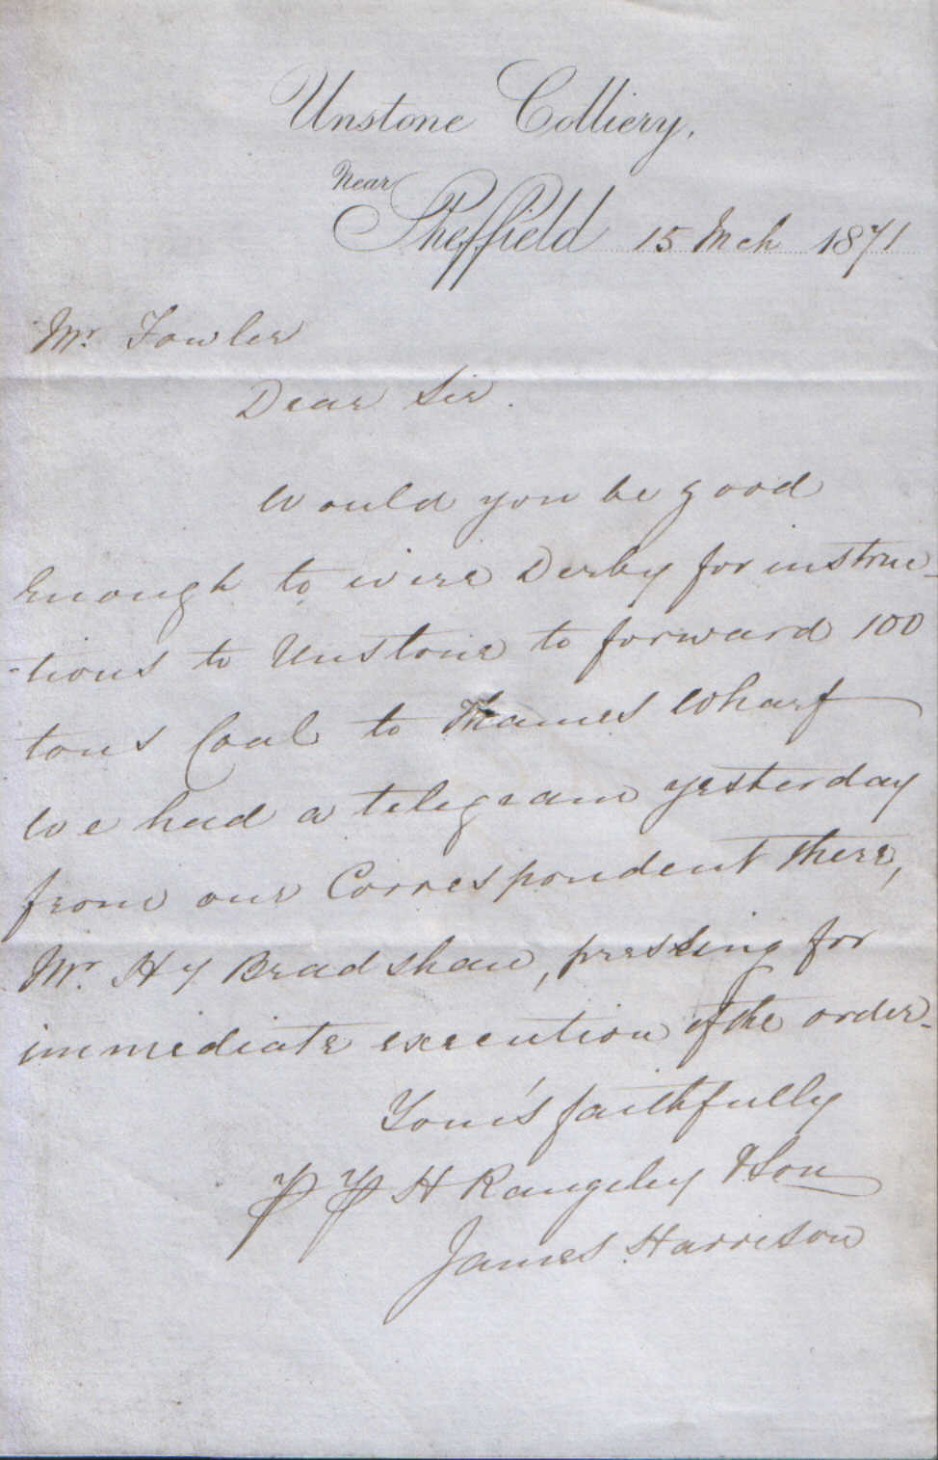 Unstone Colliery,
Near
Sheffield 15 Mch 1871
Mr. Fowler
Dear Sir.
Would you be good
enough to wire Derby for instruc-
-tions to Unstone to forward 100
tons Coal to Thames Wharf
We had a telegram yesterday
from our Correspondent there,
Mr. Hy Bradshaw, pressing for
immediate execution of the order.
Your's faithfully
P P H Rangeley & Son
James Harrison